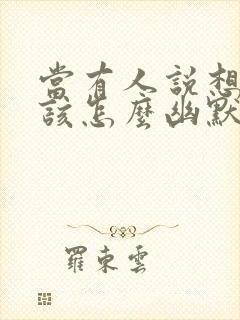 當有人說想
該怎麼幽默
羅東雲